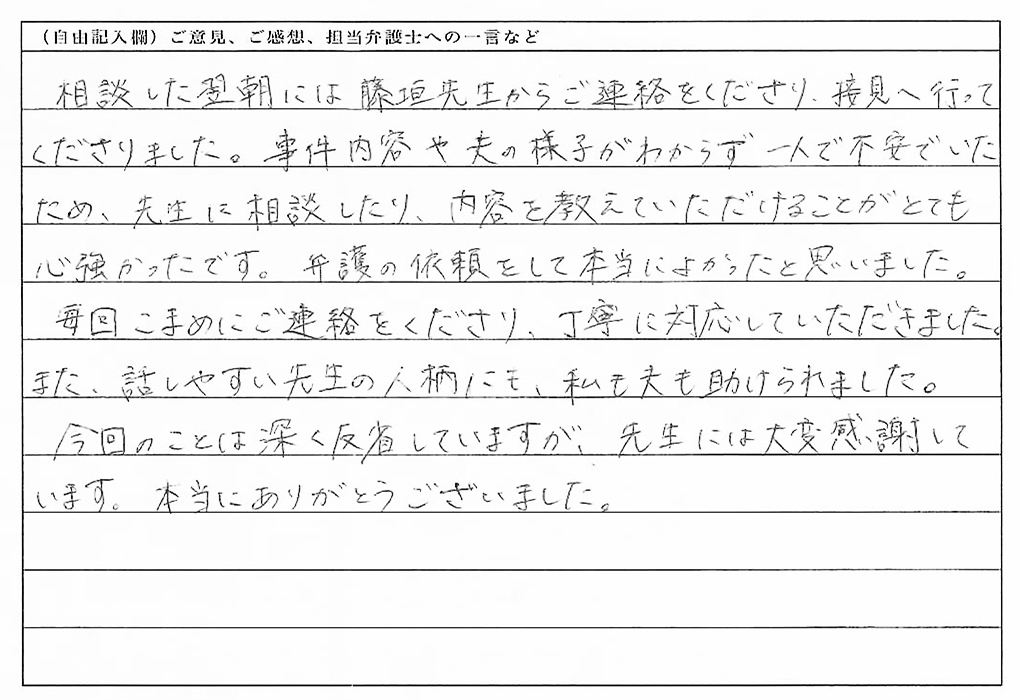 （自由記入欄）ご意見、ご感想、担当弁護士への一言など
相談した翌朝には藤垣先生からご連絡をくださり、接見へ行って
くださりました。事件内容や夫の様子がわからず一人で不安でいた
ため、先生に相談したり、内容を教えていただけることがとても
心強かったです。弁護の依頼をして本当によかったと思いました。
毎回こまめにご連絡をくださり、丁寧に対応していただきました。
また、話しやすい先生の人柄にも、私も夫も助けられました。
今回のことは深く反省していますが、先生には大変感謝して
います。本当にありがとうございました。